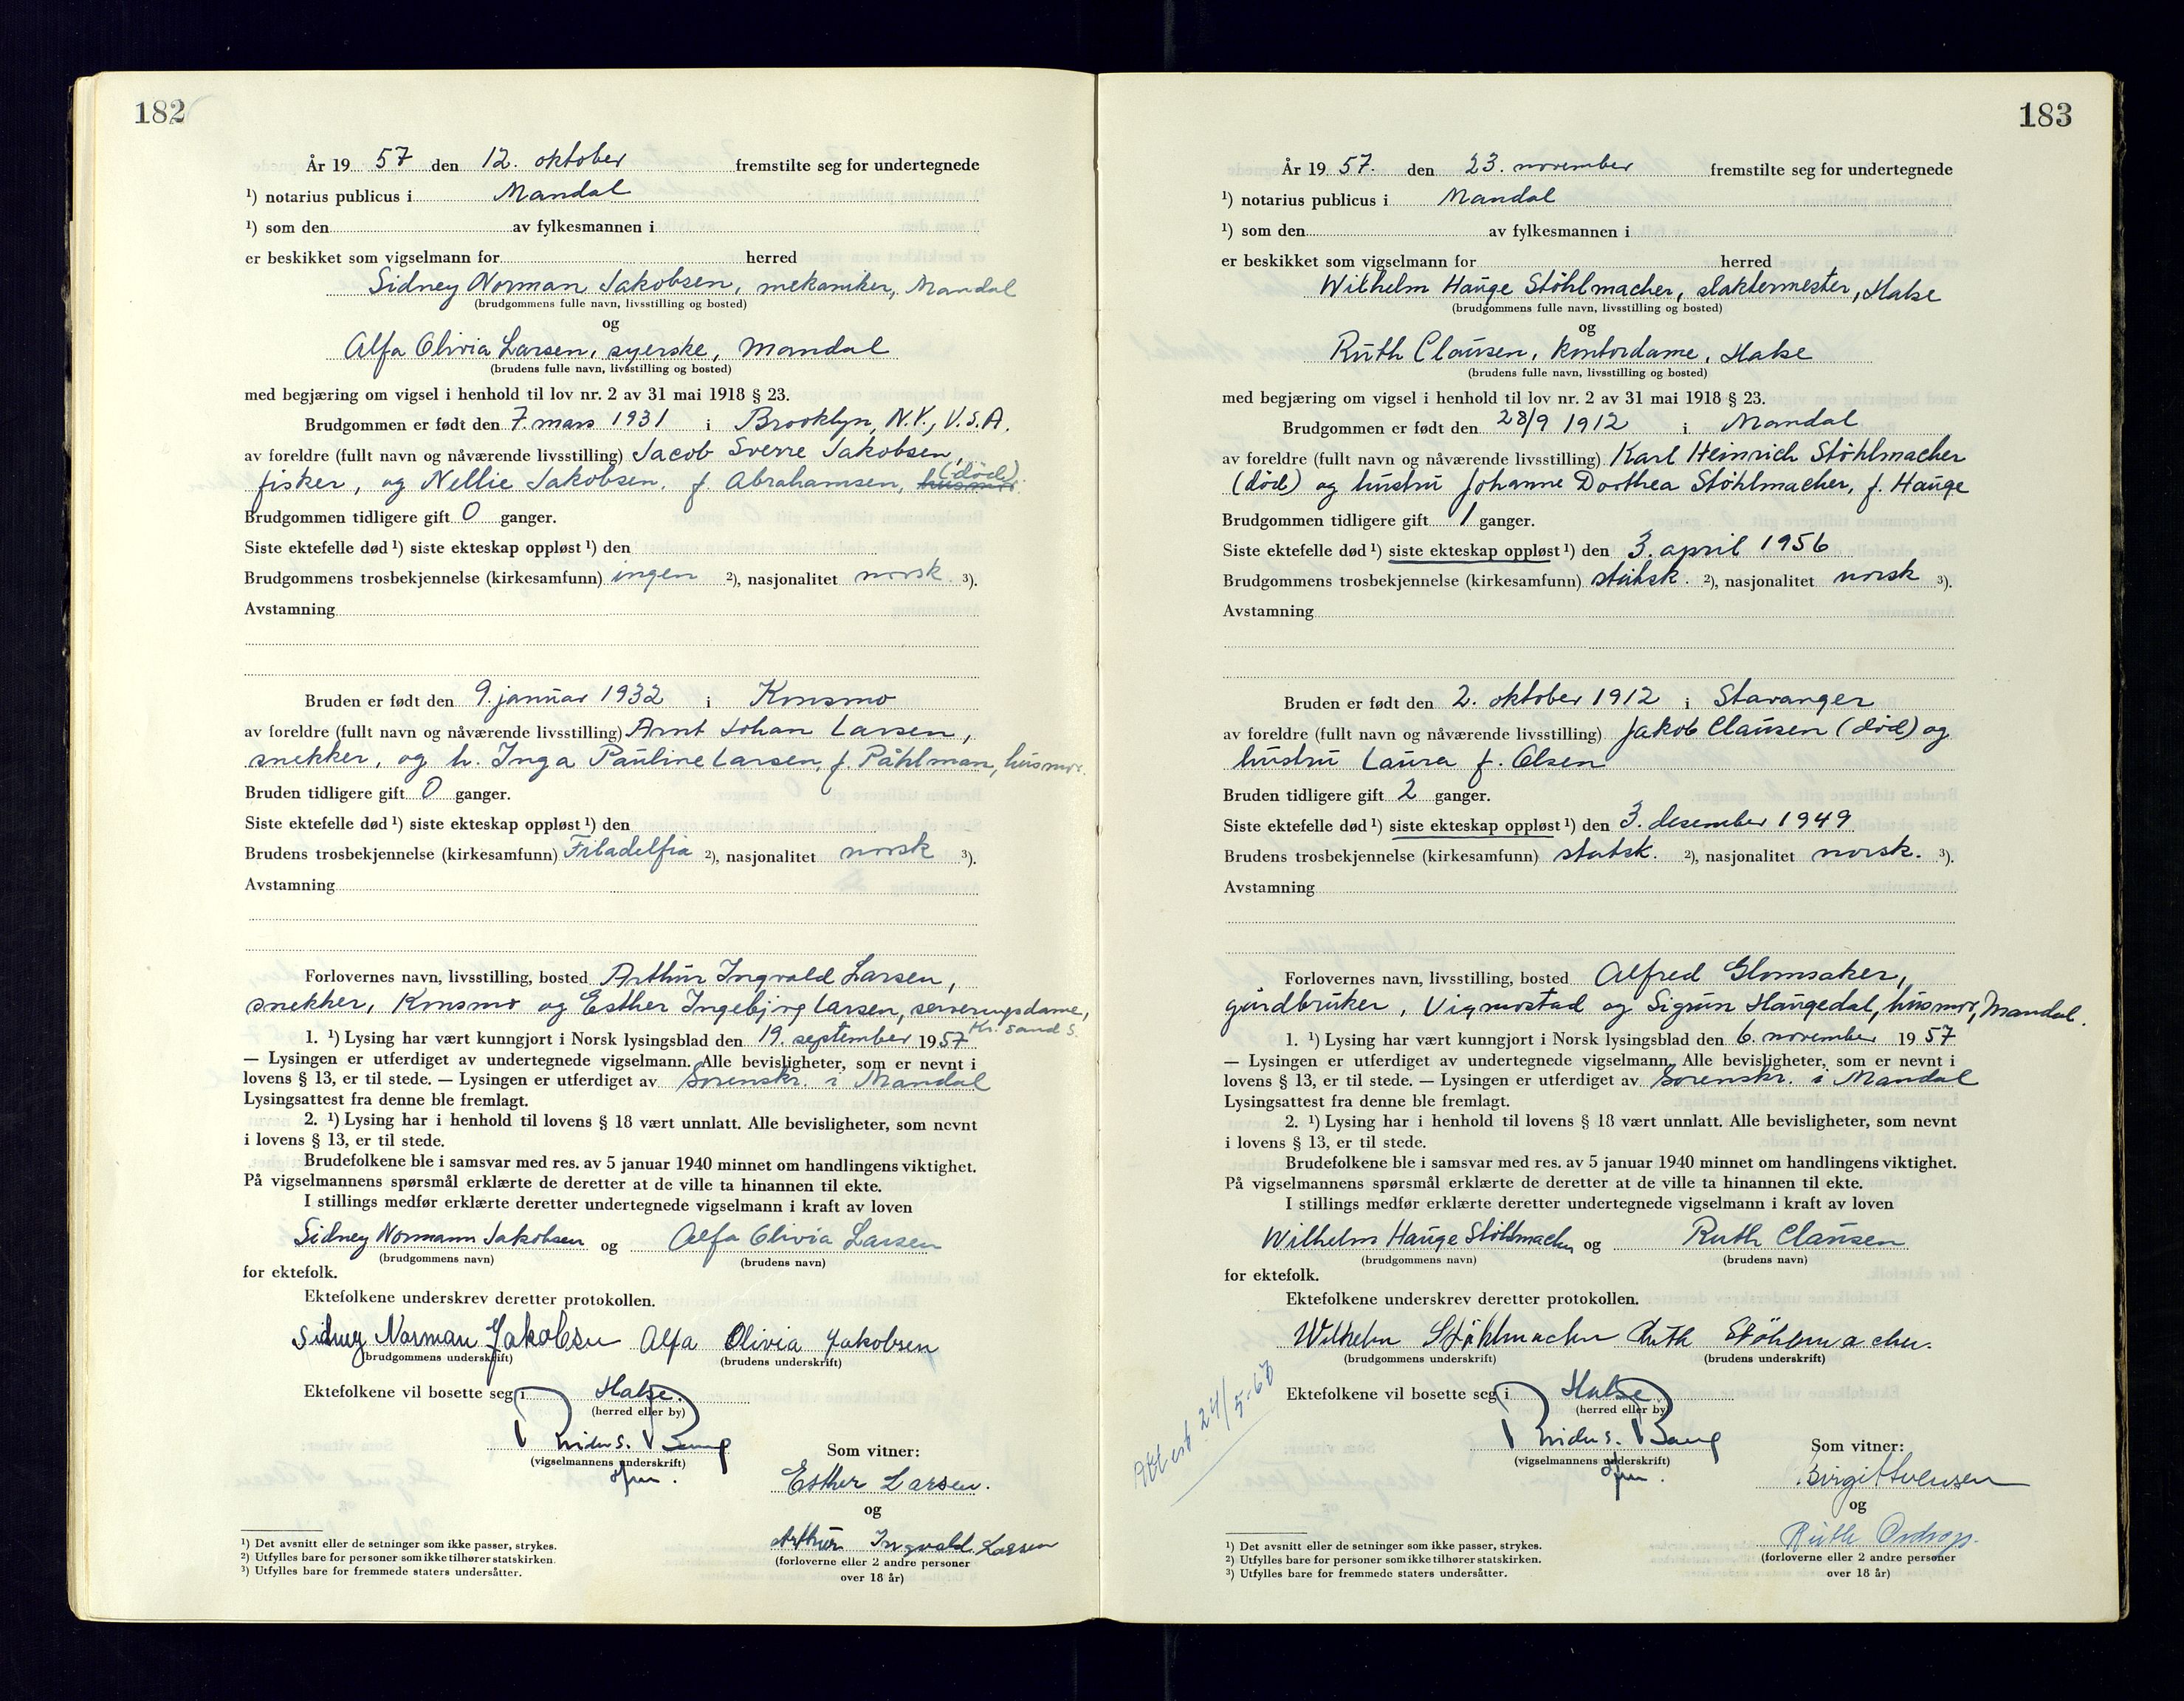 182
År 19 57 den 12. oktober fremstilte seg for undertegnede
¹) notarius publicus i Mandal
¹) som den av fylkesmannen i
er beskikket som vigselmann for herred
Sidney Norman Jakobsen, mekaniker, Mandal
(brudgommens fulle navn, livsstilling og bosted)
og
Alfa Olivia Larsen, syerske, Mandal
(brudens fulle navn, livsstilling og bosted)
med begjæring om vigsel i henhold til lov nr. 2 av 31 mai 1918 § 23.
Brudgommen er født den 7. mars 1931 i Brooklyn, N.Y., U.S.A.
av foreldre (fullt navn og nåværende livsstilling) Jacob Sverre Jakobsen,
fisker, og Nellie Jakobsen, f. Abrahamsen, husmor. (død)
Brudgommen tidligere gift 0 ganger.
Siste ektefelle død ¹) siste ekteskap oppløst ¹) den
Brudgommens trosbekjennelse (kirkesamfunn) ingen ²), nasjonalitet norsk ³).
Avstamning
Bruden er født den 9. januar 1932 i Konsmo
av foreldre (fullt navn og nåværende livsstilling) Arnt Johan Larsen,
snekker, og h. Inga Pauline Larsen, f. Påhlman, husmor.
Bruden tidligere gift 0 ganger.
Siste ektefelle død ¹) siste ekteskap oppløst ¹) den
Brudens trosbekjennelse (kirkesamfunn) Filadelfia ²), nasjonalitet norsk ³).
Avstamning
Forlovernes navn, livsstilling, bosted Arthur Ingvald Larsen,
snekker, Konsmo og Esther Ingebjørg Larsen, serveringsdame,
Kr. sand S.
1. ¹) Lysing har vært kunngjort i Norsk lysingsblad den 19. september 1957
— Lysingen er utferdiget av undertegnede vigselmann. Alle bevisligheter, som er nevnt i
lovens § 13, er til stede. — Lysingen er utferdiget av Sorenskr. i Mandal
Lysingsattest fra denne ble fremlagt.
2. ¹) Lysing har i henhold til lovens § 18 vært unnlatt. Alle bevisligheter, som nevnt
i lovens § 13, er til stede.
Brudefolkene ble i samsvar med res. av 5 januar 1940 minnet om handlingens viktighet.
På vigselmannens spørsmål erklærte de deretter at de ville ta hinannen til ekte.
I stillings medfør erklærte deretter undertegnede vigselmann i kraft av loven
Sidney Normann Jakobsen og Alfa Olivia Larsen
(brudgommens navn) (brudens navn)
for ektefolk.
Ektefolkene underskrev deretter protokollen.
Sidney Norman Jakobsen Alfa Olivia Jakobsen
(brudgommens underskrift) (brudens underskrift)
Ektefolkene vil bosette seg i Halse.
(herred eller by)
(vigselmannens underskrift)
Som vitner:
Esther Larsen.
og
Arthur Ingvald Larsen
(forloverne eller 2 andre personer
over 18 år)
¹) Det avsnitt eller de setninger som ikke passer, strykes.
²) Utfylles bare for personer som ikke tilhører statskirken.
³) Utfylles bare for fremmede staters undersåtter.
183
År 19 57. den 23. november fremstilte seg for undertegnede
¹) notarius publicus i Mandal
¹) som den av fylkesmannen i
er beskikket som vigselmann for herred
Wilhelm Hauge Stöhlmacher, slaktermester, Halse
(brudgommens fulle navn, livsstilling og bosted)
og
Ruth Clausen, kontordame, Halse
(brudens fulle navn, livsstilling og bosted)
med begjæring om vigsel i henhold til lov nr. 2 av 31 mai 1918 § 23.
Brudgommen er født den 28/9 1912 i Mandal
av foreldre (fullt navn og nåværende livsstilling) Karl Heinrich Stöhlmacher
(død) og hustru Johanne Dorthea Stöhlmacher, f. Hauge
Brudgommen tidligere gift 1 ganger.
Siste ektefelle død ¹) siste ekteskap oppløst ¹) den 3. april 1956
Brudgommens trosbekjennelse (kirkesamfunn) statsk. ²), nasjonalitet norsk ³).
Avstamning
Bruden er født den 2. oktober 1912 i Stavanger
av foreldre (fullt navn og nåværende livsstilling) Jakob Clausen (død) og
hustru Laura f. Olsen
Bruden tidligere gift 2 ganger.
Siste ektefelle død ¹) siste ekteskap oppløst ¹) den 3. desember 1949
Brudens trosbekjennelse (kirkesamfunn) statsk. ²), nasjonalitet norsk. ³).
Avstamning
Forlovernes navn, livsstilling, bosted Alfred Glomsaker,
gårdbruker, Vigmostad og Sigrun Haugedal, husmor, Mandal.
1. ¹) Lysing har vært kunngjort i Norsk lysingsblad den 6. november 19 57
— Lysingen er utferdiget av undertegnede vigselmann. Alle bevisligheter, som er nevnt i
lovens § 13, er til stede. — Lysingen er utferdiget av Sorenskr. i Mandal
Lysingsattest fra denne ble fremlagt.
2. ¹) Lysing har i henhold til lovens § 18 vært unnlatt. Alle bevisligheter, som nevnt
i lovens § 13, er til stede.
Brudefolkene ble i samsvar med res. av 5 januar 1940 minnet om handlingens viktighet.
På vigselmannens spørsmål erklærte de deretter at de ville ta hinannen til ekte.
I stillings medfør erklærte deretter undertegnede vigselmann i kraft av loven
Wilhelm Hauge Stöhlmacher og Ruth Clausen
(brudgommens navn) (brudens navn)
for ektefolk.
Ektefolkene underskrev deretter protokollen.
Wilhelm Stöhlmacher Ruth Stöhlmacher.
(brudgommens underskrift) (brudens underskrift)
Attest 24/5-60
Ektefolkene vil bosette seg i Halse
(herred eller by)
(vigselmannens underskrift)
Som vitner:
Birgit Svensen
og
Ruth
(forloverne eller 2 andre personer
over 18 år)
¹) Det avsnitt eller de setninger som ikke passer, strykes.
²) Utfylles bare for personer som ikke tilhører statskirken.
³) Utfylles bare for fremmede staters undersåtter.